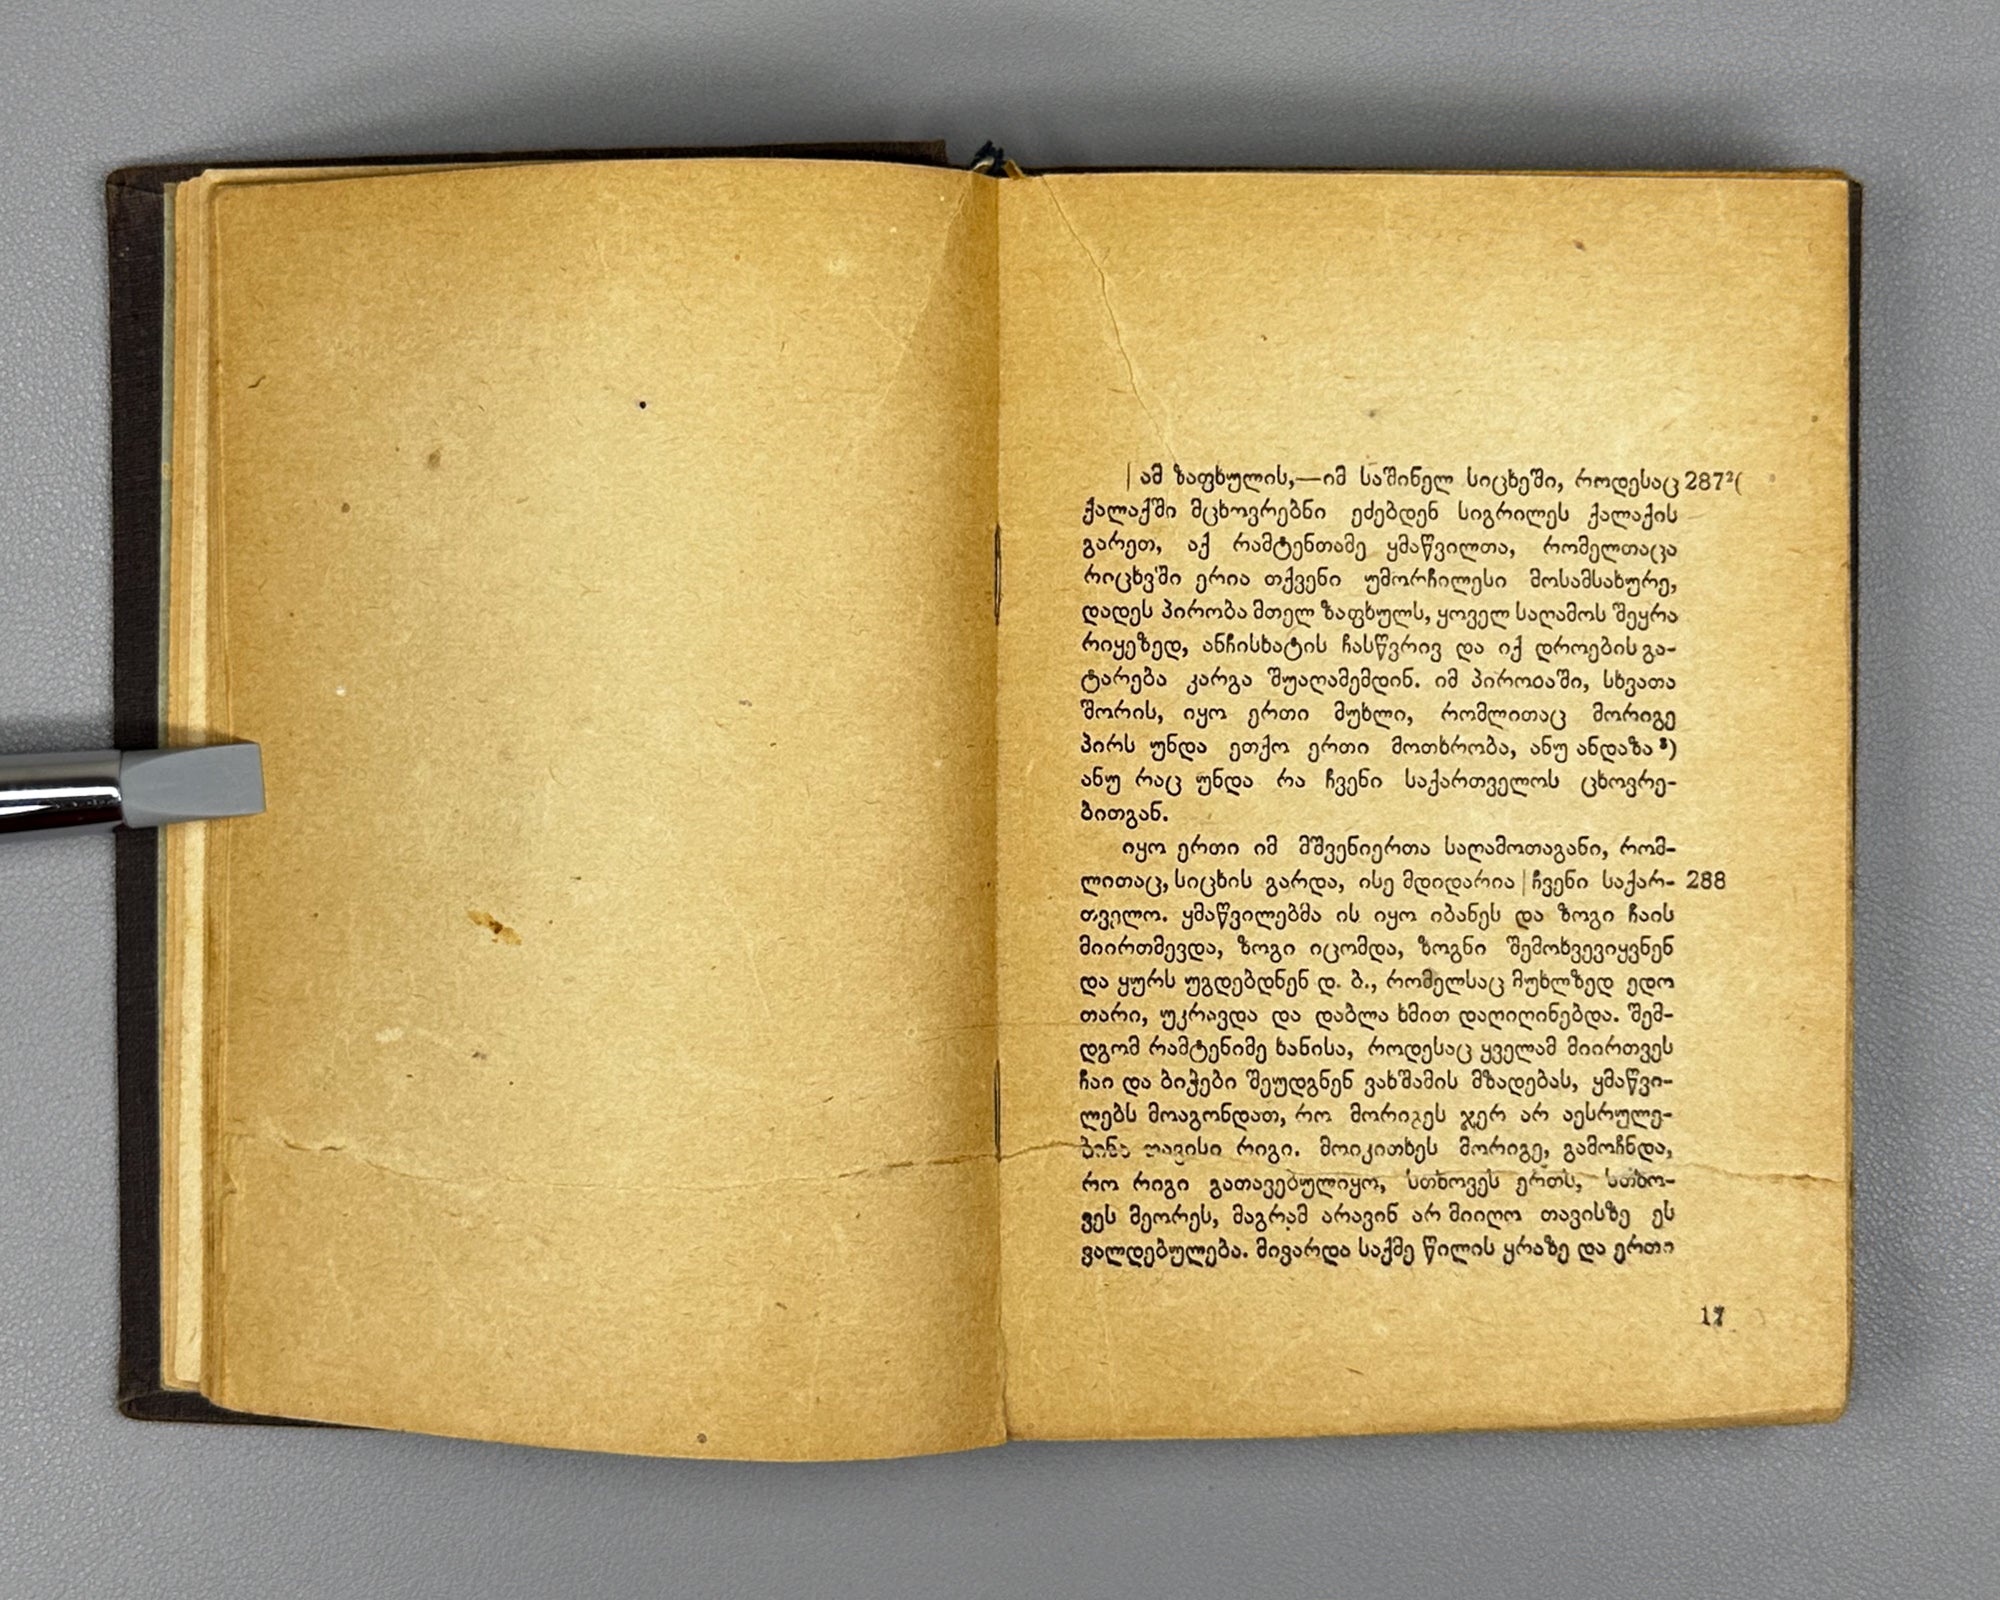 | ამ ზაფხულის,—იმ საშინელ სიცხეში, როდესაც 287²(
ქალაქში მცხოვრებნი ეძებდენ სიგრილეს ქალაქის
გარეთ, აქ რამტენთამე ყმაწვილთა, რომელთაცა
რიცხვში ერია თქვენი უმორჩილესი მოსამსახურე,
დადეს პირობა მთელ ზაფხულს, ყოველ საღამოს შეყრა
რიყეზედ, ანჩისხატის ჩასწვრივ და იქ დროების გა-
ტარება კარგა შუაღამემდინ. იმ პირობაში, სხვათა
შორის, იყო ერთი მუხლი, რომლითაც მორიგე
პირს უნდა ეთქო ერთი მოთხრობა, ანუ ანდაზა ³)
ანუ რაც უნდა რა ჩვენი საქართველოს ცხოვრე-
ბითგან.
იყო ერთი იმ მშვენიერთა საღამოთაგანი, რომ-
ლითაც, სიცხის გარდა, ისე მდიდარია | ჩვენი საქარ- 288
თველო. ყმაწვილებმა ის იყო იბანეს და ზოგი ჩაის
მიირთმევდა, ზოგი იცომდა, ზოგნი შემოხვევიყვნენ
და ყურს უგდებდნენ დ. ბ., რომელსაც მუხლზედ ედო
თარი, უკრავდა და დაბლა ხმით დაღიღინებდა. შემ-
დგომ რამტენიმე ხანისა, როდესაც ყველამ მიირთვეს
ჩაი და ბიჭები შეუდგნენ ვახშამის მზადებას, ყმაწვი-
ლებს მოაგონდათ, რო მორიგეს ჯერ არ აესრულე-
ბინა თავისი რიგი. მოიკითხეს მორიგე, გამოჩნდა,
რო რიგი გათავებულიყო, სთხოვეს ერთს, სთხო-
ვეს მეორეს, მაგრამ არავინ არ მიიღო თავისზე ეს
ვალდებულება. მივარდა საქმე წილის ყრაზე და ერთი
17